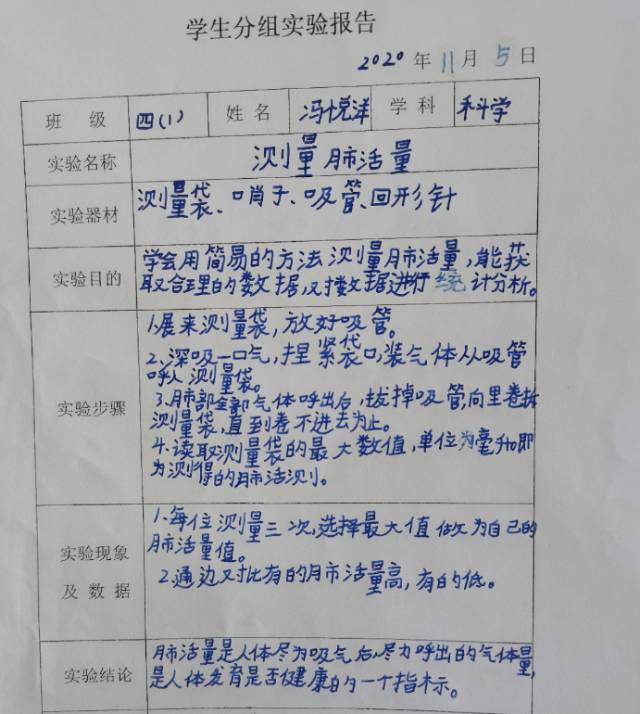 学生分组实验报告
2020 年 11 月 5 日
班 级 四(1) 姓 名 冯悦洋 学 科 科学
实验名称 测量肺活量
实验器材 测量袋、口肖子、吸管、回形针
实验目的 学会用简易的方法测量肺活量,能获
取合理的数据,对数据进行统计分析。
实验步骤 1.展来测量袋,放好吸管。
2.深吸一口气,捏紧袋口,装气体从吸管
呼入测量袋。
3.肺部全部气体呼出后,拔掉吸管,向里卷折
测量袋,直到卷不进去为止。
4.读取测量袋的最大数值,单位为毫升,即
为测得的肺活测。
实验现象及数据 1.每位测量三次,选择最大值做为自己的
肺活量值。
2.通边对比有的肺活量高,有的低。
实验结论 肺活量是人体尽为吸气后,尽力呼出的气体量,
是人体发育是否健康的一个指标。